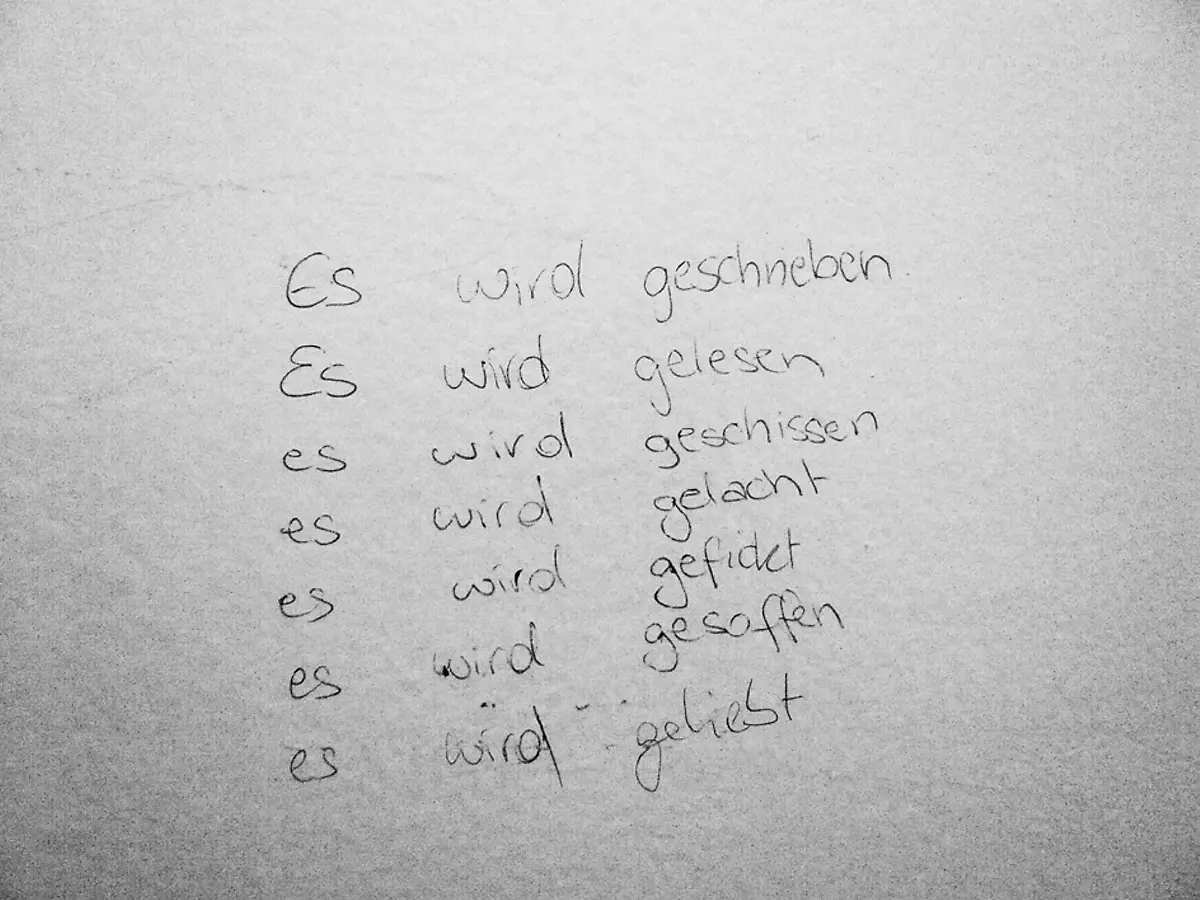 Es wird geschrieben
Es wird gelesen
es wird geschissen
es wird gelacht
es wird gefickt
es wird gesoffen
es wird geliebt